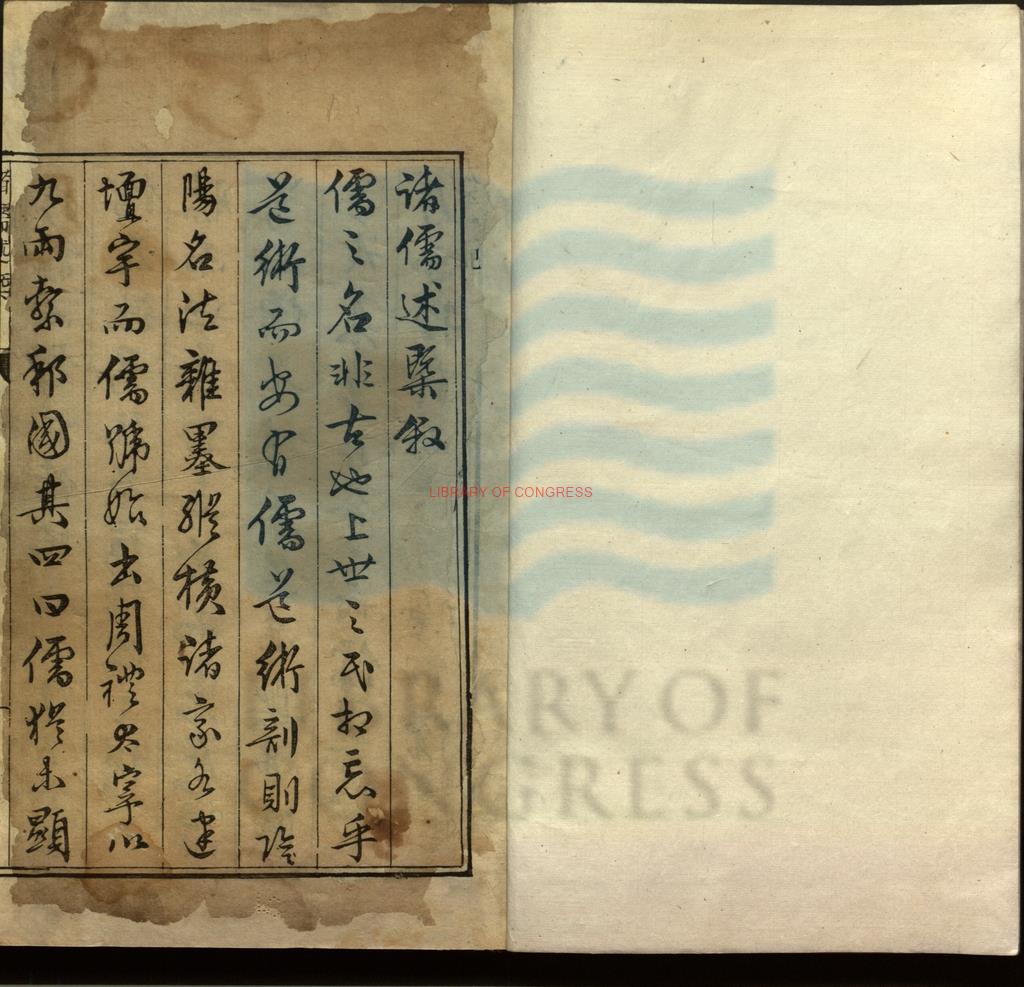 諸儒述槩叙
儒之名非古也上世之民相忘乎
道術而安有儒道術剖則陰
陽名法雜墨縱橫諸家各建
壇宇而儒號始出周禮太宰以
九兩繫邦國其四曰儒猶未顯
LIBRARY OF CONGRESS
LIBRARY OF CONGRESS